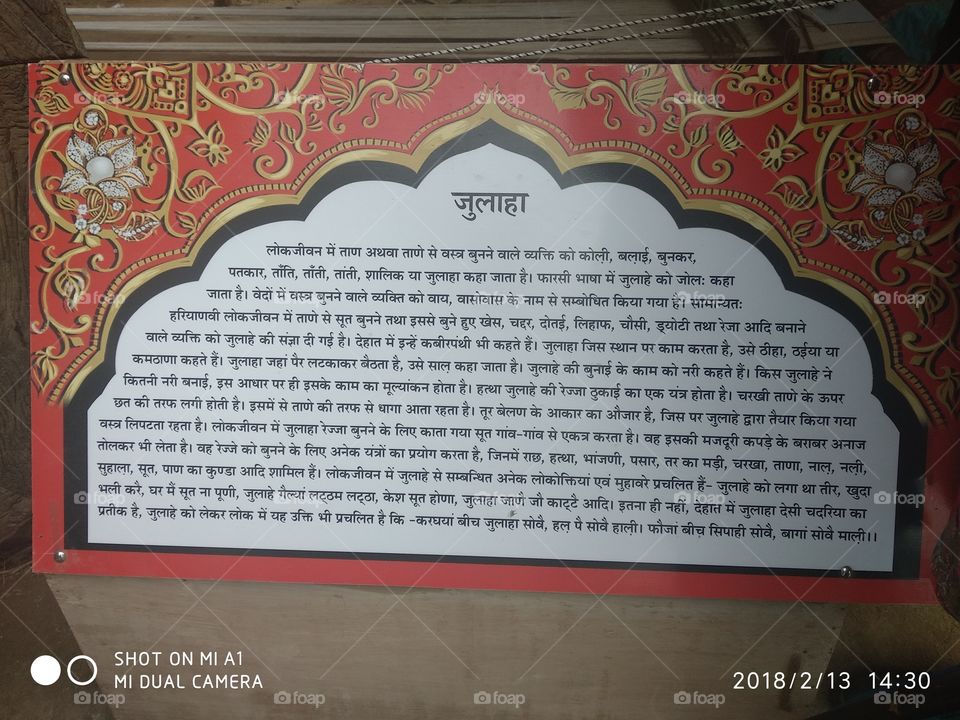 जुलाहा
लोकजीवन में ताण अथवा ताणे से वस्त्र बुनने वाले व्यक्ति को कोल़ी, बल़ाई, बुनकर,
पतकार, ताँति, ताँती, तांती, शालिक या जुलाहा कहा जाता है। फारसी भाषा में जुलाहे को जोल: कहा
जाता है। वेदों में वस्त्र बुनने वाले व्यक्ति को वाय, वासोवास के नाम से सम्बोधित किया गया है। सामान्यत:
हरियाणवी लोकजीवन में ताणे से सूत बुनने तथा इससे बुने हुए खेस, चद्दर, दोतई, लिहाफ, चौसी, ड्योटी तथा रेजा आदि बनाने
वाले व्यक्ति को जुलाहे की संज्ञा दी गई है। देहात में इन्हें कबीरपंथी भी कहते हैं। जुलाहा जिस स्थान पर काम करता है, उसे ठीहा, ठईया या
कमठाणा कहते हैं। जुलाहा जहां पैर लटकाकर बैठता है, उसे साल़ कहा जाता है। जुलाहे की बुनाई के काम को नरी कहते हैं। किस जुलाहे ने
कितनी नरी बनाई, इस आधार पर ही इसके काम का मूल्यांकन होता है। हत्था जुलाहे की रेज्जा ठुकाई का एक यंत्र होता है। चरखी ताणे के ऊपर
छत की तरफ लगी होती है। इसमें से ताणे की तरफ से धागा आता रहता है। तूर बेलण के आकार का औजार है, जिस पर जुलाहे द्वारा तैयार किया गया
वस्त्र लिपटता रहता है। लोकजीवन में जुलाहा रेज्जा बुनने के लिए काता गया सूत गांव-गांव से एकत्र करता है। वह इसकी मजदूरी कपड़े के बराबर अनाज
तोलकर भी लेता है। वह रेज्जे को बुनने के लिए अनेक यंत्रों का प्रयोग करता है, जिनमें राछ, हत्था, भांजणी, पसार, तर का मड़ी, चरखा, ताणा, नाल़, नल़ी,
सुहाला, सूत, पाण का कुण्डा आदि शामिल हैं। लोकजीवन में जुलाहे से सम्बन्धित अनेक लोकोक्तियां एवं मुहावरे प्रचलित हैं- जुलाहे को लगा था तीर, खुदा
भली करै, घर मैं सूत ना पूणी, जुलाहे गैल्यां लट्ठम लट्ठा, केश सूत होणा, जुलाहा जाणे जौ काट्टै आदि। इतना ही नहीं, देहात में जुलाहा देसी चदरिया का
प्रतीक है, जुलाहे को लेकर लोक में यह उक्ति भी प्रचलित है कि -करघयां बीच जुलाहा सोवै, हल़ पै सोवै हाल़ी। फौजां बीच सिपाही सोवै, बागां सोवै माल़ी।।
SHOT ON MI A1
MI DUAL CAMERA
2018/2/13 14:30